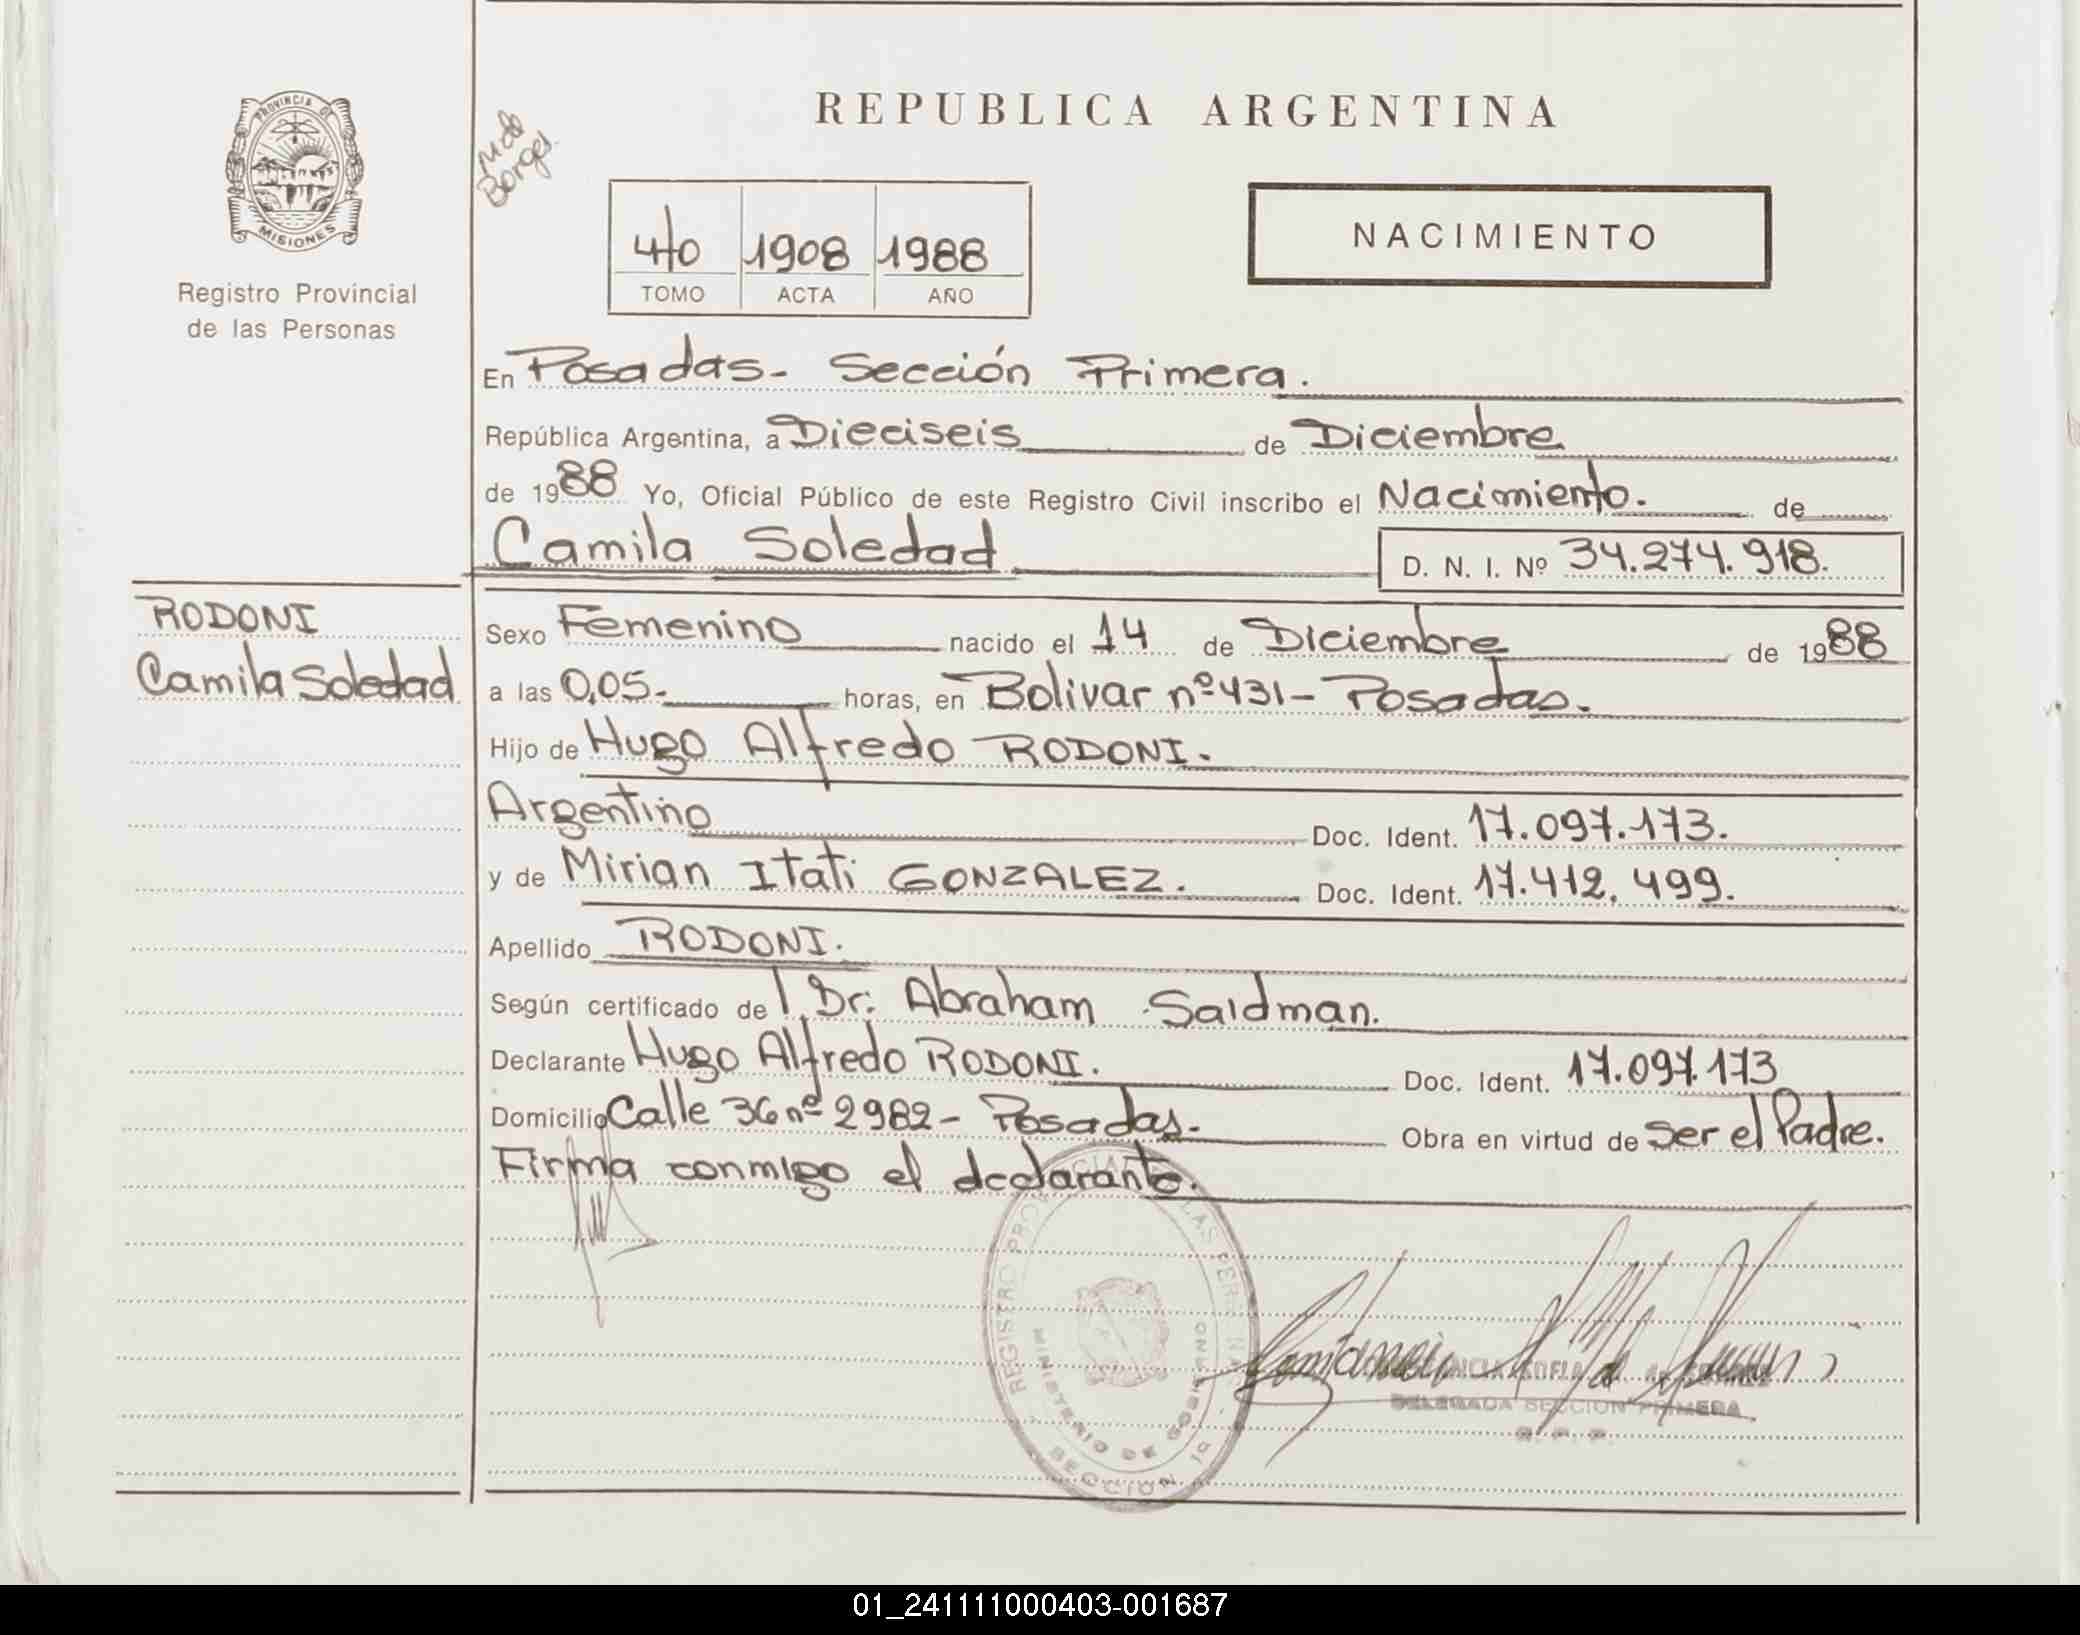 PROVINCIA DE
MISIONES
Registro Provincial
de las Personas
RODONI
Camila Soledad
REPUBLICA ARGENTINA
Borges
4to 1908 1988
TOMO ACTA AÑO
NACIMIENTO
En Posadas- Sección Primera.
República Argentina, a Dieciseis de Diciembre
de 1988 Yo, Oficial Público de este Registro Civil inscribo el Nacimiento. de
Camila Soledad D. N. I. Nº 34.274.918.
Sexo Femenino nacido el 14 de Diciembre de 1988
a las 0,05.- horas, en Bolivar nº 431- Posadas.
Hijo de Hugo Alfredo RODONI.
Argentino Doc. Ident. 17.097.173.
y de Mirian Itati GONZALEZ. Doc. Ident. 17.412.499.
Apellido RODONI.
Según certificado de l Dr: Abraham Saidman.
Declarante Hugo Alfredo RODONI. Doc. Ident. 17.097.173
Domicilio Calle 36 nº 2982- Posadas. Obra en virtud de ser el Padre.
Firma conmigo el declarante.
REGISTRO PROVINCIAL LAS PERSONAS
MINISTERIO DE GOBIERNO
SECCION 1ª
DELEGADA SECCION PRIMERA
R. P. P.
01_241111000403-001687